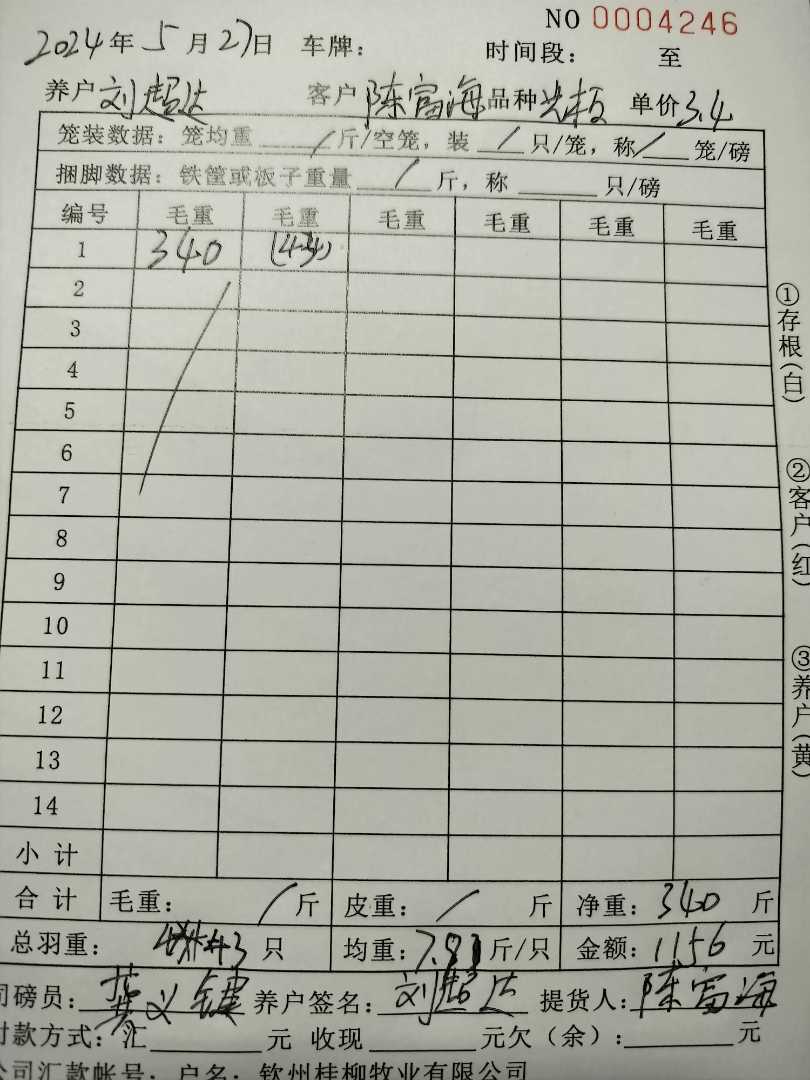 NO 0004246
2024年5月27日 车牌: 时间段: 至
养户刘超达 客户陈富海品种 单价3.4
笼装数据: 笼均重 / 斤/空笼, 装 / 只/笼, 称 / 笼/磅
捆脚数据: 铁筐或板子重量 / 斤, 称 只/磅
编号 毛重 毛重 毛重 毛重 毛重 毛重
1 340
2
3
4
5
6
7
8
9
10
11
12
13
14
小计
合计 毛重: / 斤 皮重: / 斤 净重: 340 斤
总羽重: 43 只 均重: 斤/只 金额: 1156 元
司磅员: 养户签名: 刘超达 提货人: 陈富海
付款方式: 汇 元 收现 元欠(余): 元
公司汇款帐号: 户名: 钦州桂柳牧业有限公司
①存根(白)
②客户(红)
③养户(黄)